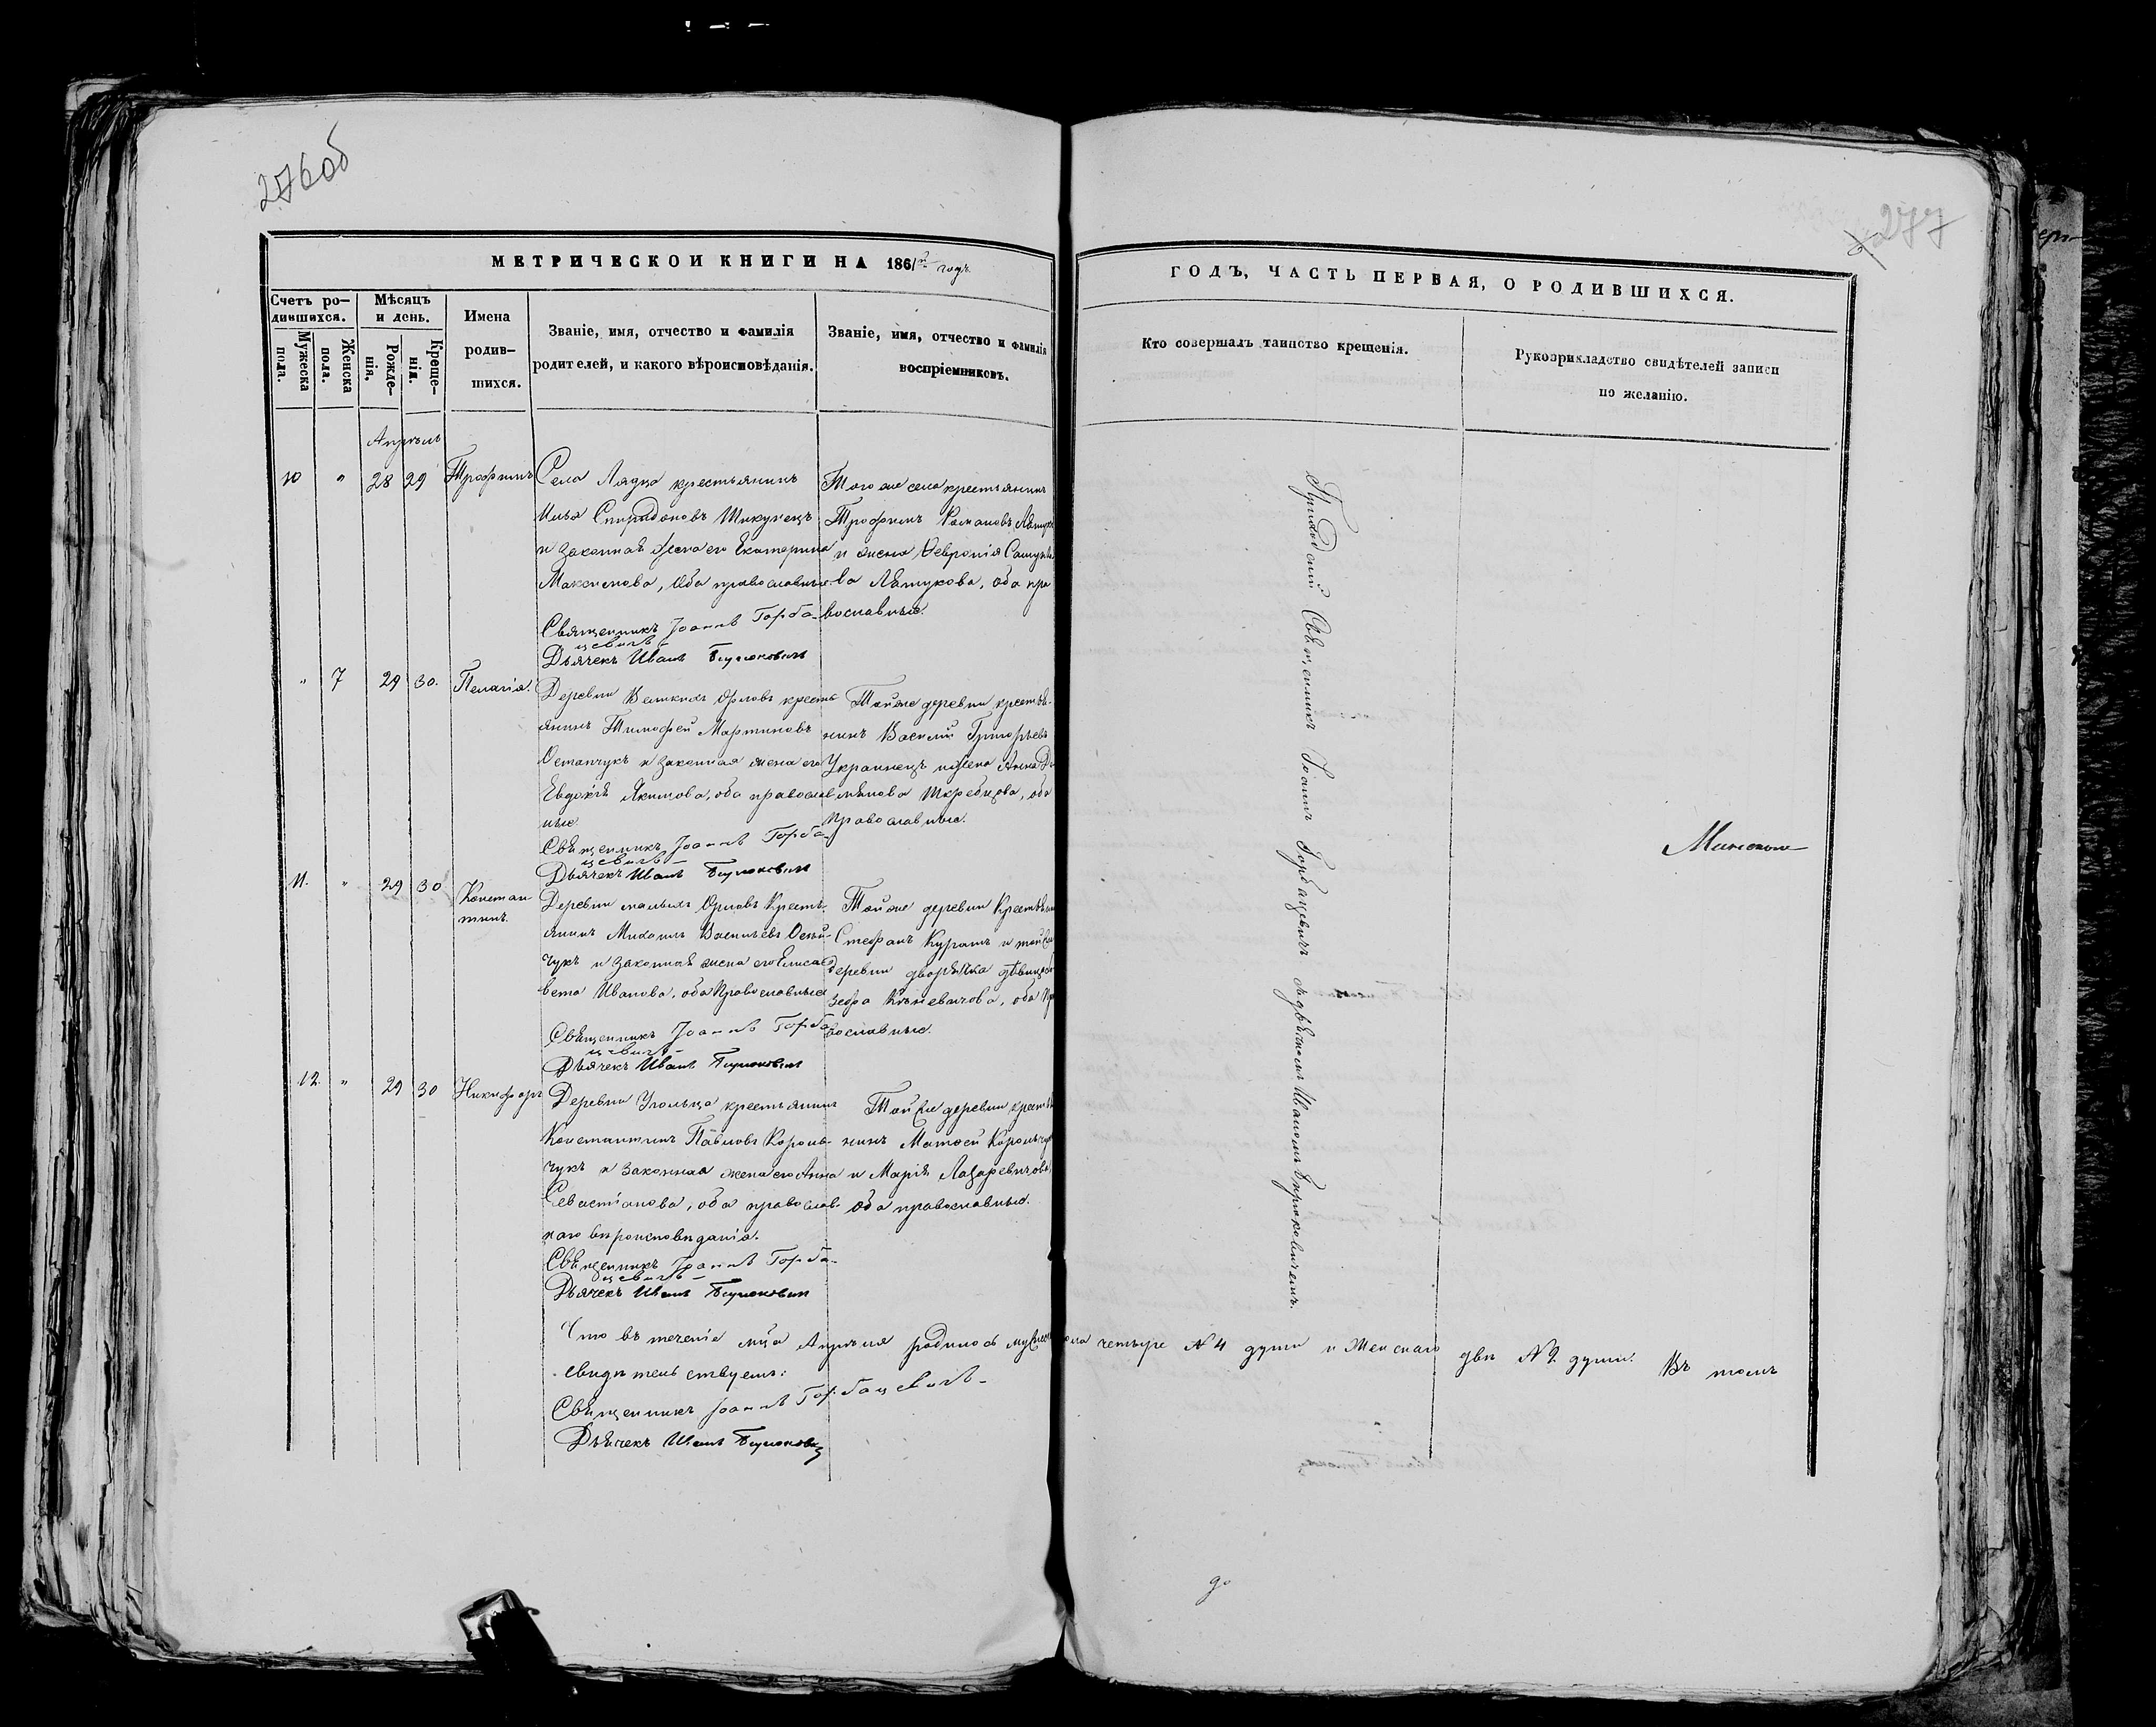 276об
277
МЕТРИЧЕСКОЙ КНИГИ НА 1861й годъ
ГОДЪ, ЧАСТЬ ПЕРВАЯ, О РОДИВШИХСЯ.
Счетъ ро-
дившихся.
Мужеска
пола.
Женска
пола.
Мѣсяцъ
и день.
Рожде-
нія.
Креще-
нія.
Имена
родив-
шихся.
Званіе, имя, отчество и фамилія
родителей, и какого вѣроисповѣданія.
Званіе, имя, отчество и фамилія
воспріемниковъ.
Кто совершалъ таинство крещенія.
Рукоприкладство свидѣтелей записи
по желанію.
Апрѣль
10 " 28 29 Трофимъ
Села Лядца крестьянинъ
Илья Спиридоновъ Шикунецъ
и законная жена его Екатерина
Максимова, оба православные
Священникъ Іоаннъ Горба-
цевичъ
Дьячекъ Иванъ
Того же села крестьянинъ
Трофимъ Романовъ
и жена Февронія
ва Лятукова, оба пра
вославные.
" 7 29 30. Пелагія.
Деревни Великихъ Орловъ кресть
янинъ Тимофей Мартиновъ
Остапчукъ и законная жена его
Евдокія Якимова, оба православ
ные
Священникъ Іоаннъ Горба-
цевичъ
Дьячекъ Иванъ
Той же деревни крестья-
нинъ Василій Григорьевъ
Украинецъ и жена Анна
оба
православные.
11. " 29 30 Констан-
тинъ.
Деревни малыхъ Орловъ Кресть-
янинъ Михаилъ Васильевъ
чукъ и законная жена его Елиса
вета Иванова, оба Православные
Священникъ Іоаннъ Горба
цевичъ
Дьячекъ Иванъ
Той же деревни Крестьянинъ
Стефанъ Курашъ и той же
деревни дворянка дѣвица
оба Пра
вославные.
12. " 29 30 Никифоръ
Деревни Угольца крестьянинъ
Константинъ Павловъ Король-
чукъ и законная жена его Анна
Севастіанова, оба православ-
наго вѣроисповѣданія.
Священникъ Іоаннъ Горба-
цевичъ
Дьячекъ Иванъ
Той же деревни крестья
нинъ Матѳей Корольчукъ
и Марія Лазаревичова
оба православные.
Приходскій Священникъ Іоаннъ Горбацевичъ съ дьячкомъ Иваномъ
Что въ теченіе мца Апрѣля родилось мужеска пола четыре №4 души и Женскаго двѣ №2 души. Въ томъ
свидѣтельствуемъ:
Священникъ Іоаннъ Горбацевичъ
Дьячекъ Иванъ
до